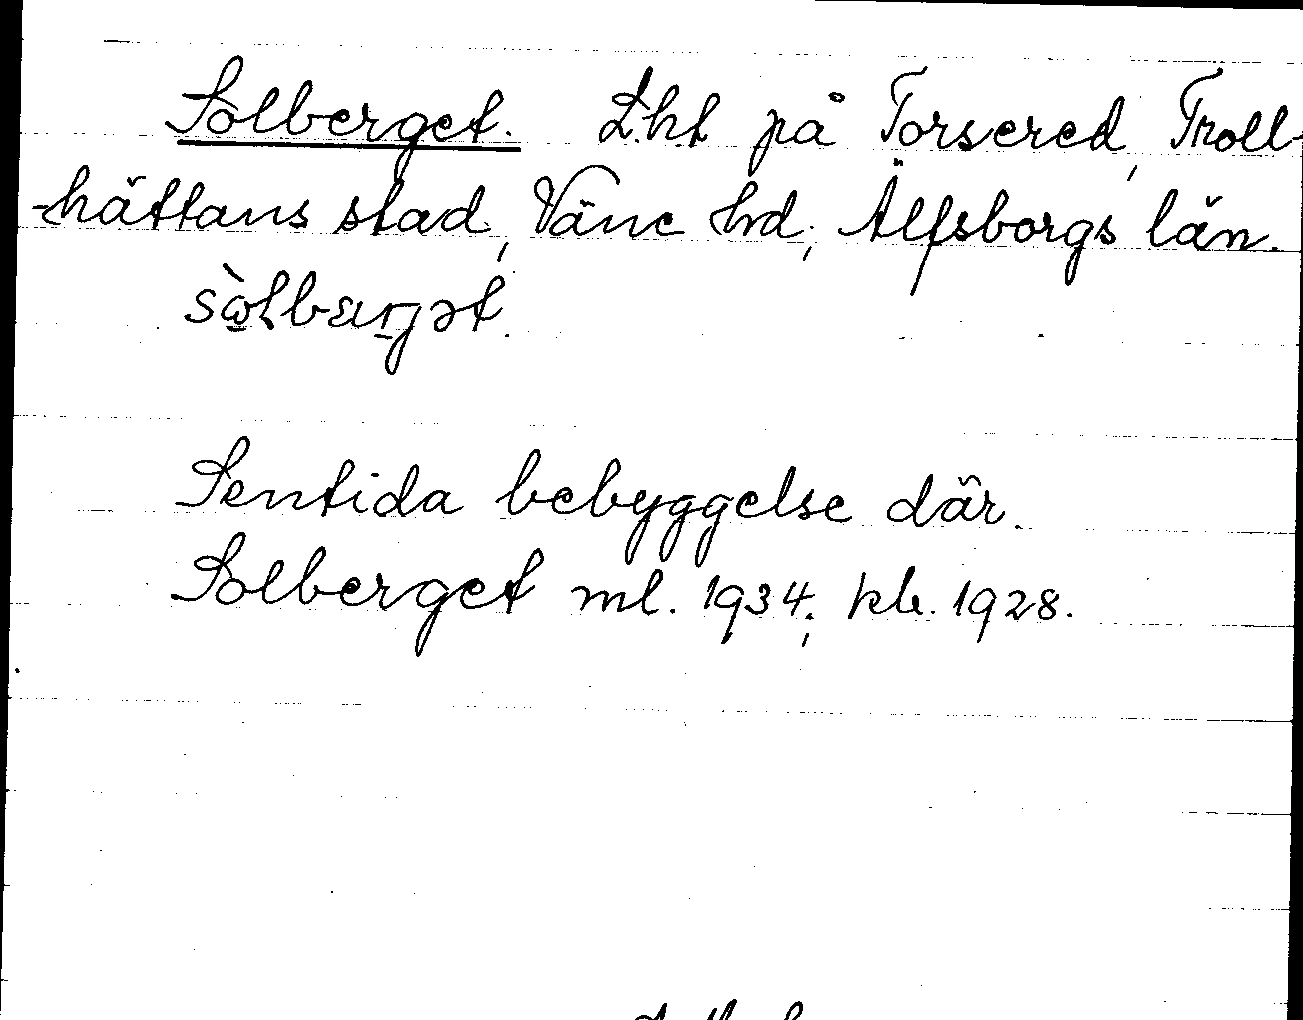 Solberget. Lht på Torsered, Troll-
-hättans stad, Väne hd, Älfsborgs län.
Sentida bebyggelse där.
Solberget ml. 1934; kb. 1928.